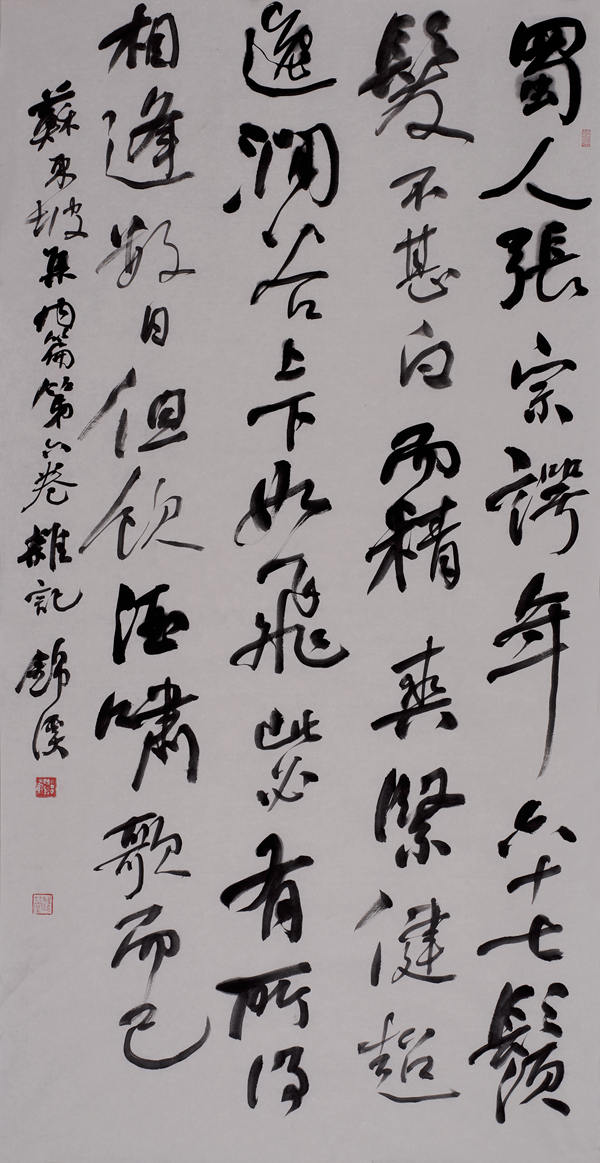 蜀人張宗諤年六十七鬚
髮不甚白而精爽緊健超
逸澗谷上下如飛此必有所得
相逢數日但飲酒嘯歌而已
蘇東坡集内篇第六卷雜記 錦溪